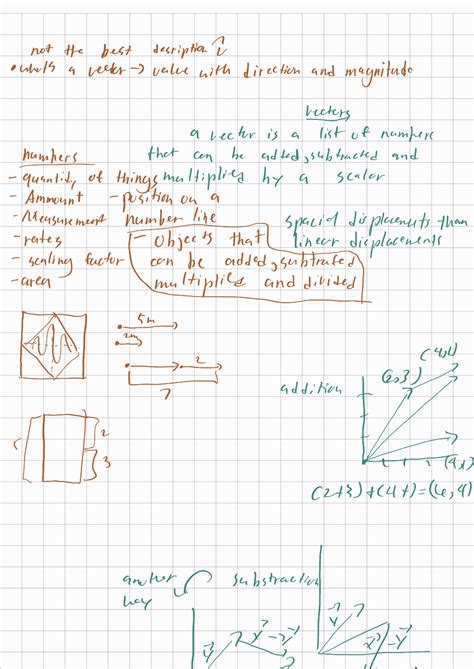 not the best desription
• whats a vector → value with direction and magnitude
vectors
a vector is a list of numbers
that can be added, subtracted and
multiplied by a scaler
numbers
- quantity of things
- Ammount
- Measurement
- rates
- scaling factor
- area
- position on a
number line
- objects that
can be added, subtrated
multiplied and divided
spacial displacments than
linear displacements
5m
2m
2
7
2
3
addition
(2,3)
(2+3)+(4+)=(6,4)
another
way
substraction